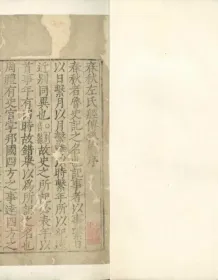 春秋左氏經傳序
春秋者魯史記之名也記事者以事繫日
以日繫月以月繫時以時繫年所以紀遠
近別同異也故史之所記必表年以
首事年有四時故錯舉以為所記之名也
周禮有史官掌邦國四方之事達四方之